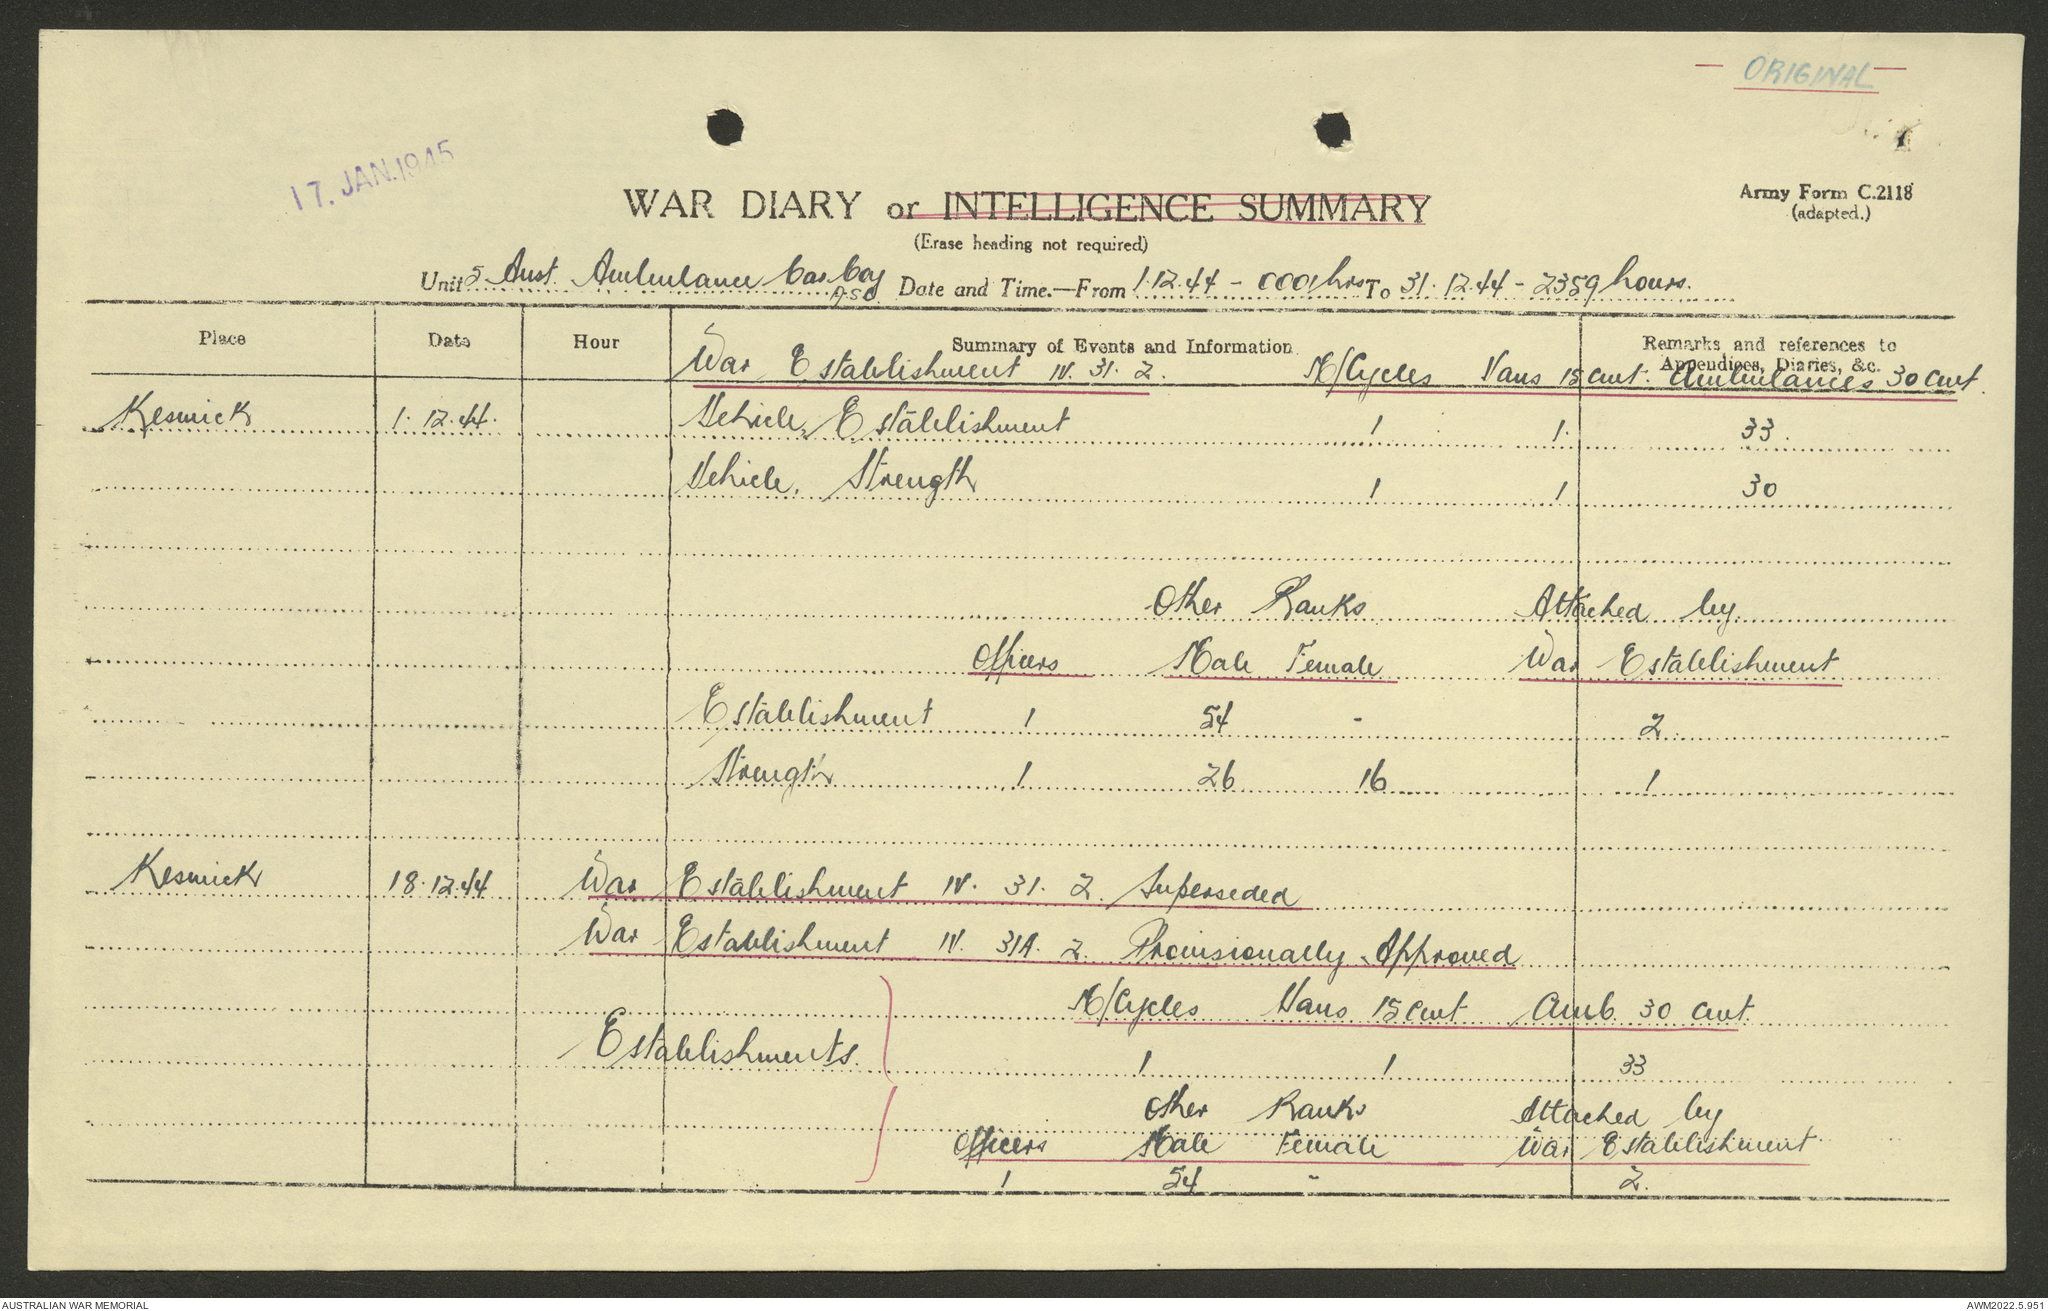 ORIGINAL
1
17. JAN. 1945
WAR DIARY or INTELLIGENCE SUMMARY
Army Form C.2118
(adapted.)
(Erase heading not required)
Unit 5 Aust. Ambulance Car Coy ASC Date and Time.—From 1.12.44 - 0001hrs To 31.12.44 - 2359 hours.
Place Date Hour Summary of Events and Information Remarks and references to
Appendices, Diaries, &c.
War Establishment IV. 31. 2. M/Cycles Vans 15 cwt. Ambulances 30 cwt.
Keswick 1.12.44. Vehicle, Establishment 1 1. 33.
Vehicle, Strength 1 1 30
Other Ranks Attached by.
Officers Male Female War Establishment
Establishment 1 54 - 2.
Strength 1 26 16 1
Keswick 18.12.44 War Establishment IV. 31. 2. Superseded
War Establishment IV. 31A. 2. Provisionally Approved
M/Cycles Vans 15 cwt Amb. 30 cwt.
Establishments. 1 1 33
Other Ranks Attached by
Officers Male Female War Establishment
1 54 - 2.
AUSTRALIAN WAR MEMORIAL
AWM2022.5.951